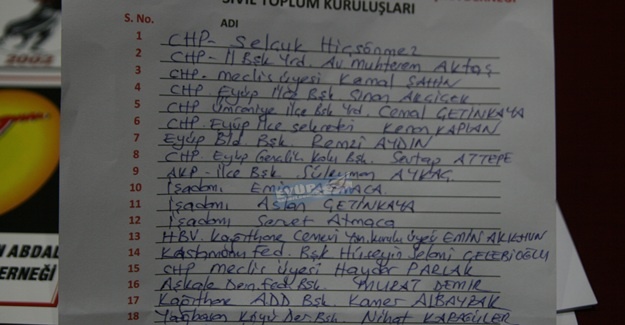 SİVİL TOPLUM KURULUŞLARI
S. No.
ADI
1 CHP- Selçuk Hiçsönmez
2 CHP- İl Bşk Yrd. Av Muhterem Aktaş
3 CHP- meclis üyesi Kemal ŞAHİN
4 CHP Eyüp İlçe Bşk Sinan Akçiçek
5 CHP Ümraniye İlçe Bşk Yrd. Cemal ÇETİNKAYA
6 CHP. Eyüp İlçe sekreteri Kenan KAPLAN
7 Eyüp Bld Bşk Remzi AYDIN
8 CHP. Eyüp Gençlik Kolu Bşk. Sertap ATTEPE
9 AKP - İlçe Bşk. Süleyman AYKAÇ.
10 İşadamı Emin ATMACA
11 İşadamı Aslan ÇETİNKAYA
12 İşadamı Servet Atmaca
13 HBV Kağıthane Cemevi Yön. kurulu üyesi EMİN AKKHUN
14 Kastamonu fed. Bşk Hüseyin Selami ÇELEBİOĞLU
15 CHP meclis üyesi Haydar PARLAK
16 Aşkale Dern. fed. Bşk. MURAT DEMİR
17 Kağıthane ADD Bşk Kamer ALBAYRAK
18 Yağbasan Köyü Der Bşk. Nihat KARAGÜLER
2002
N ABDAL
ERNEĞİ